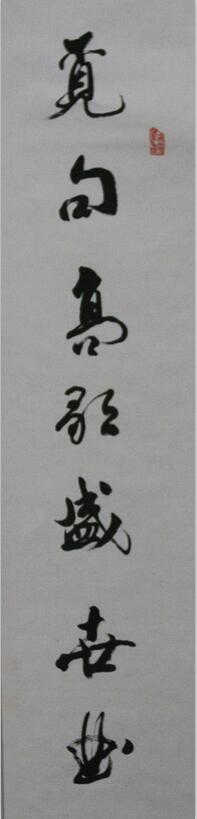 覓句高歌盛世曲